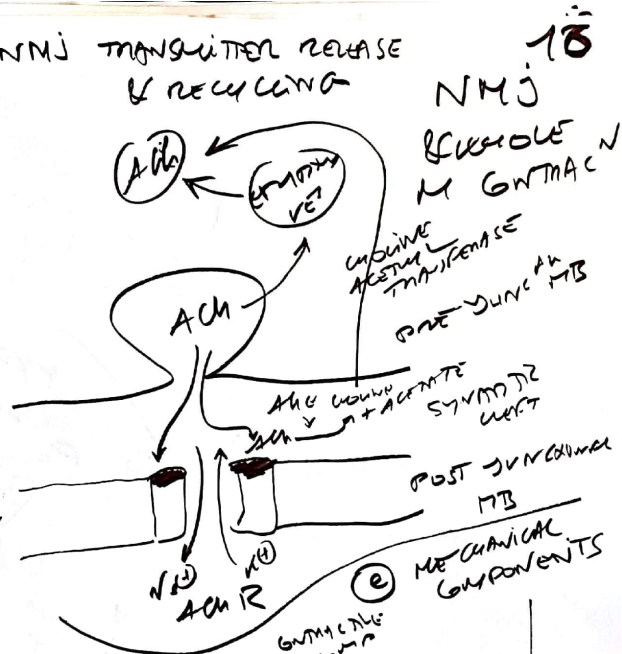 NMJ TRANSMITTER RELEASE
& RECYCLING
18
NMJ
& WHOLE
M CONTRACN
ACh
EMPTY
VES
CHOLINE
ACETYL
TRANSFERASE
PRE JUNCAN
MB
ACh
AChE CHOLINE
+ ACETATE
ACh
SYNAPTIC
CLEFT
POST JUNCTIONAL
MB
Na+
K+
ACh R
e MECHANICAL
COMPONENTS
CONTRACTILE
COMP